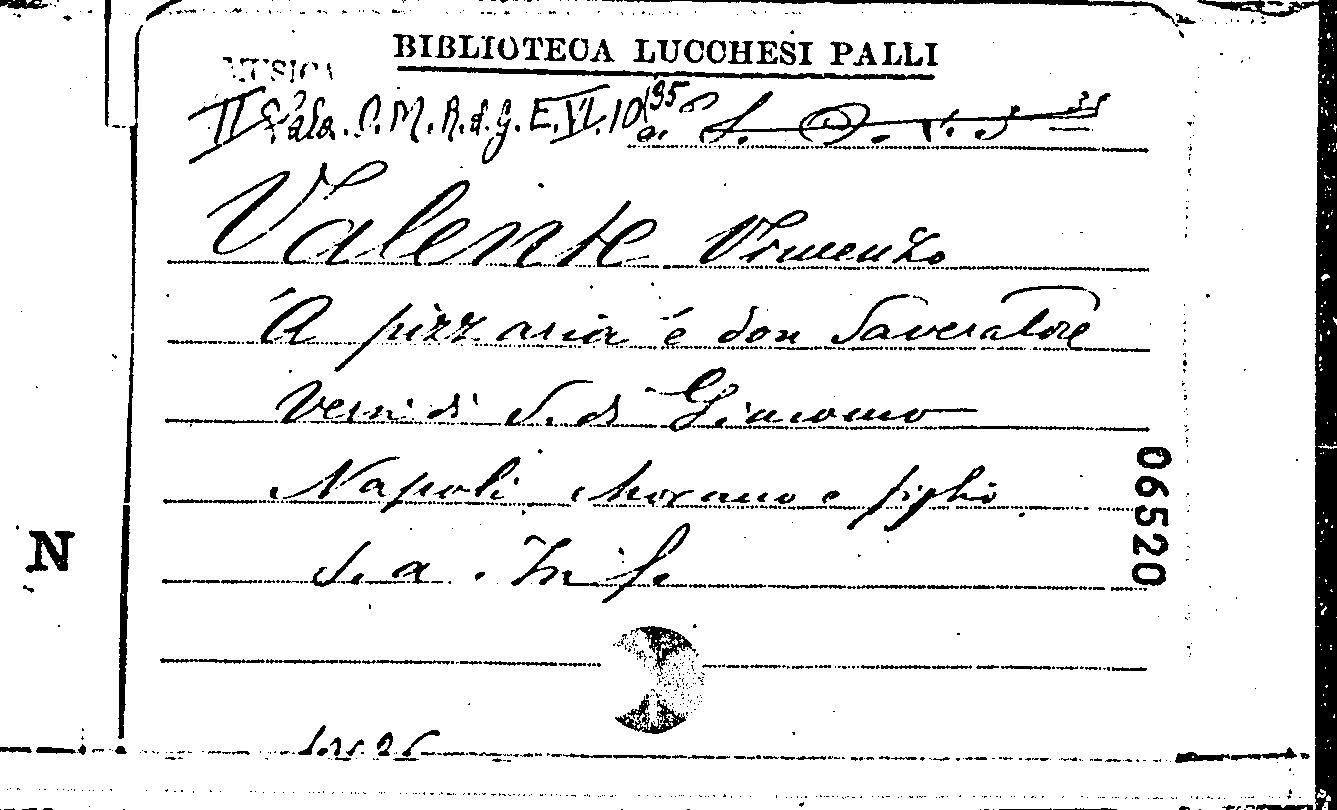 BIBLIOTECA LUCCHESI PALLI
MUSICA
II Sala. P. M. R. d. G. E. VI. 10 (35
Valente Vincenzo
'A pizzaria 'e don Saveratore
Versi di S. di Giacomo
Napoli Morano e figlio
S. a. In f.
06520
N